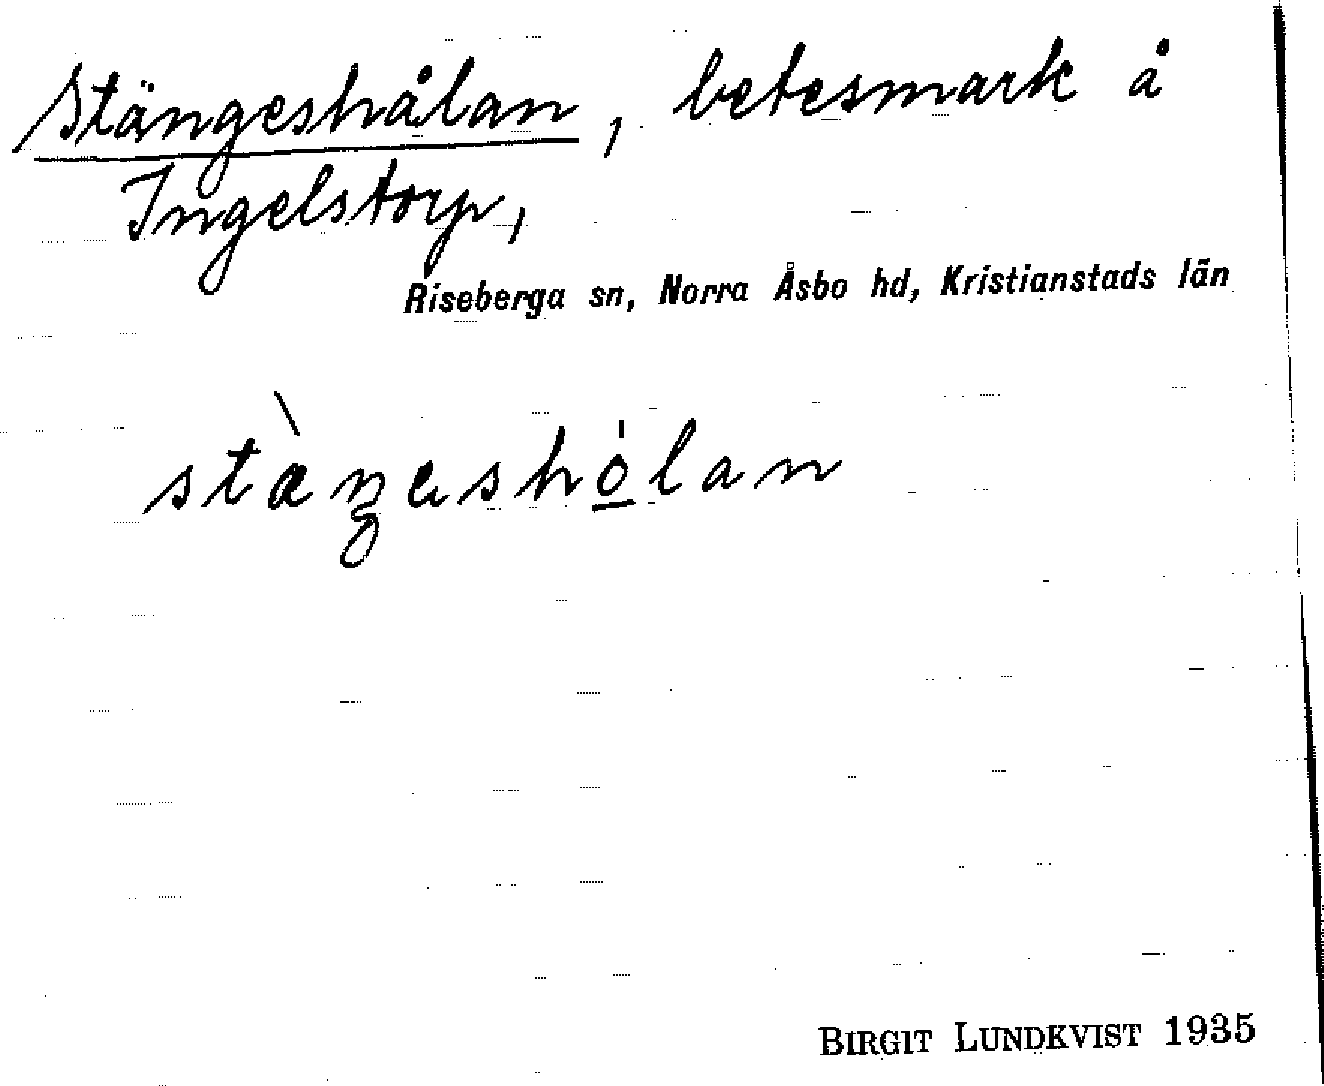 Stängeshålan, betesmark å
Ingelstorp,
Riseberga sn, Norra Åsbo hd, Kristianstads län
stæ̀ŋeshó̲lan
BIRGIT LUNDKVIST 1935